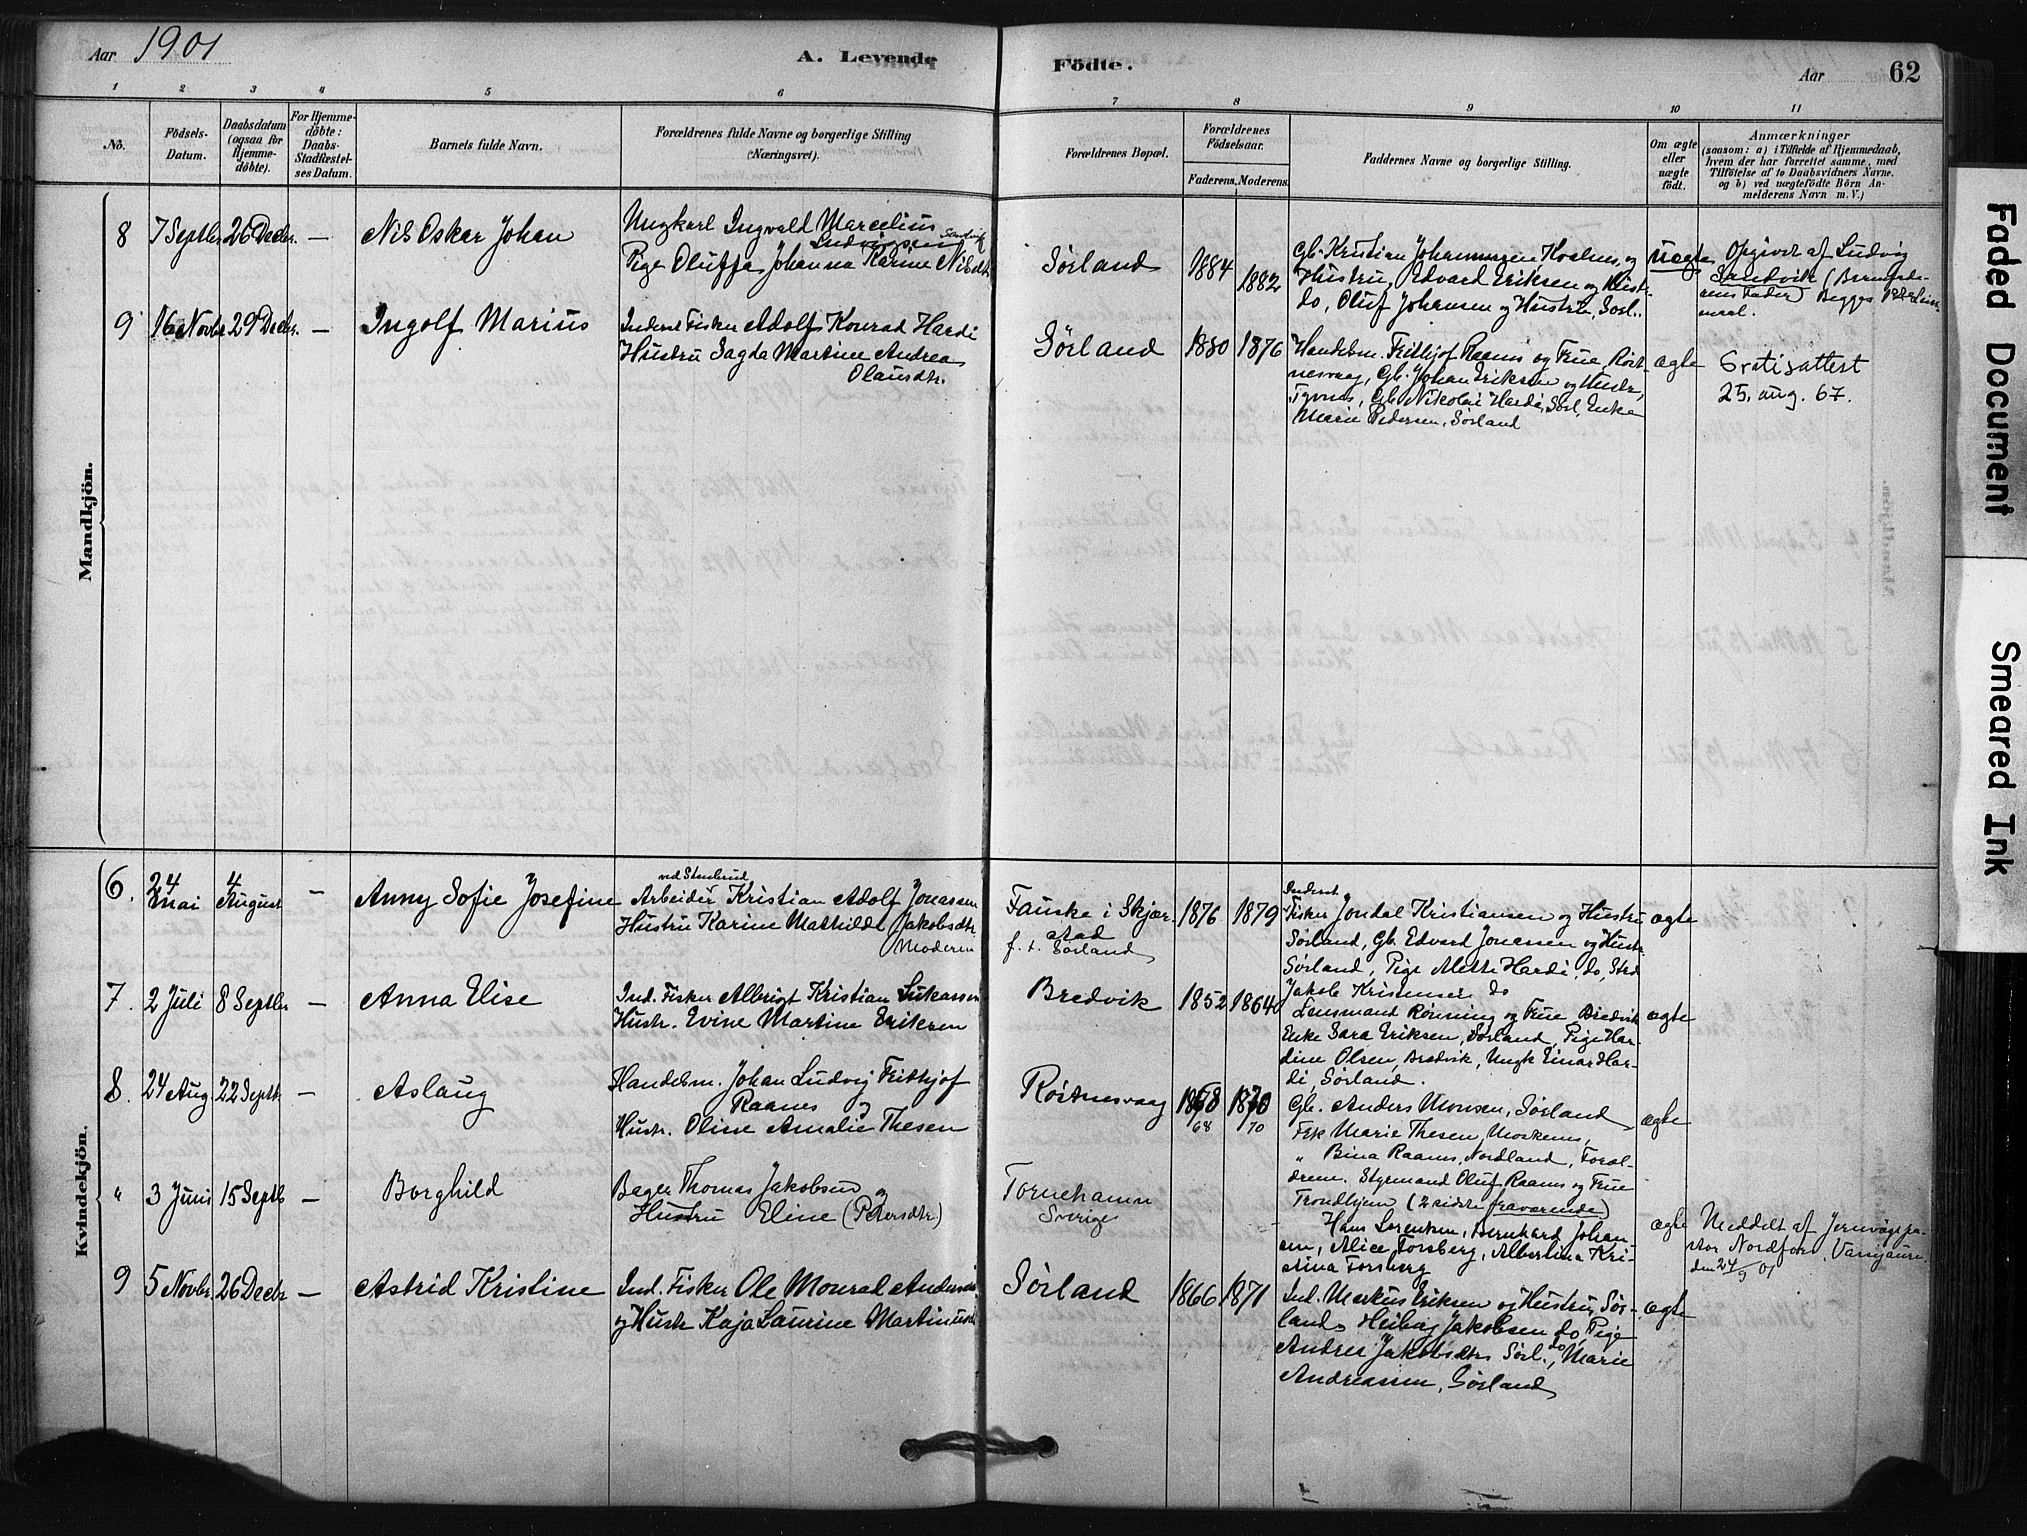 Aar 1901
A. Levende
Födte.
Aar
62
1 2 3 4 5 6 7 8 9 10 11
No.
Födsels-
Datum.
Daabsdatum
(ogsaa for
Hjemme-
döbte).
For Hjemme-
döbte:
Daabs-
Stadfæstel-
ses Datum.
Barnets fulde Navn.
Forældrenes fulde Navne og borgerlige Stilling
(Næringsvei).
Forældrenes Bopæl.
Forældrenes
Födselsaar.
Faderens. Moderens.
Faddernes Navne og borgerlige Stilling.
Om ægte
eller
uægte
födt.
Anmærkninger
(saasom: a) i Tilfælde af Hjemmedaab,
hvem der har forrettet samme, med
Tilföielse af to Daabsvidners Navne.
og b) ved uægtefödte Börn An-
melderens Navn m. V.)
Mandkjön.
8 7 Septbr 26 Decbr. — Nils Oskar Johan
Ungkarl Ingvald Marcelius
Ludvigsen Sandvik
Pige Oluffa Johanna Karine Nilsdtr
Sørland 1884 1882
Gb. Kristian Johannessen Kvalnes, og
Hustru, Edvard Eriksen og Hust.
do, Oluf Johansen og Hustru, Sørl.
uægte
Opgivet af Ludvig
Sandvik (Barnefade-
rens Fader) Begges 1ste Leier-
maal.
9 16 Novbr 29 Decbr. — Ingolf Marius
Inderst Fisker Adolf Konrad Hardi
Hustru Sagda Martine Andrea
Olausdtr.
Sørland 1880 1876
Handelsm. Frithjof Raanes og Frue, Røst-
nesvaag, Gb. Johan Eriksen og Hustr,
Tyvnes, Gb. Nikolai Hardi, Sørl, Enke
Marie Pedersen, Sørland
ægte
Gratisattest
25. aug. 67.
Kvindekjön.
6. 24 Mai 4 August — Anny Sofie Josefine
ved Stenbrud
Arbeider Kristian Adolf Jonassen
Hustru Karine Mathilde Jakobsdtr
Moderen
Fauske i Skjer-
stad
f. t. Sørland
1876 1879
Inderst
Fisker Jondal Kristiansen og Hustru
Sørland, Gb. Edvard Jonassen og Hustr.
Sørland, Pige Mette Hardi, do,
Jakob Kristensen do
ægte
7. 2 Juli 8 Septbr — Anna Elise
Ind. Fisker Albrigt Kristian Lukassen
Hustr. Evine Martine Eriksen
Bredvik 1852 1864
Lensmand Rønning og Frue Bredvik
Enke Sara Eriksen, Sørland, Pige Har-
dine Olsen, Bredvik, Ungk Einar Har-
di, Sørland.
ægte
8. 24 Aug 22 Septbr — Aslaug
Handelsm. Johan Ludvig Frithjof
Raanes og
Hustr. Oline Amalie Thesen
Røstnesvaag 1868 1870
68 70
Gb. Anders Monsen, Sørland
Frk Marie Thesen, Moskenes,
" Bina Raanes, Nordland, Foræl-
drene. Styrmand Oluf Raanes og Frue
Trondhjem (2 sidste fraværende)
ægte
" 3 Juni 15 Septb — Borghild
Bager Thomas Jakobsen og
Hustru Eline (Petersdtr)
Tornehamn
Sverige
Hans Lorentsen, Bernhard Johan-
sen, Alice Forsberg, Albertina Kri-
stina Forsberg
ægte
Meddelt af Jernvägspa-
stor Nordfors, Vassijaure
den 24/9 01
9 5 Novbr. 26 Decbr — Astrid Kristine
Ind. Fisker Ole Monrad Andersen
og Hustr Kaja Laurine Martinusdr
Sørland 1866 1871
Ind. Markus Eriksen og Hustru Sør-
land, Heiberg Jakobsen do, Pige
Andrea Jakobsdtr Sørl. do, Marie
Andreassen, Sørland
ægte
Faded Document
Smeared Ink